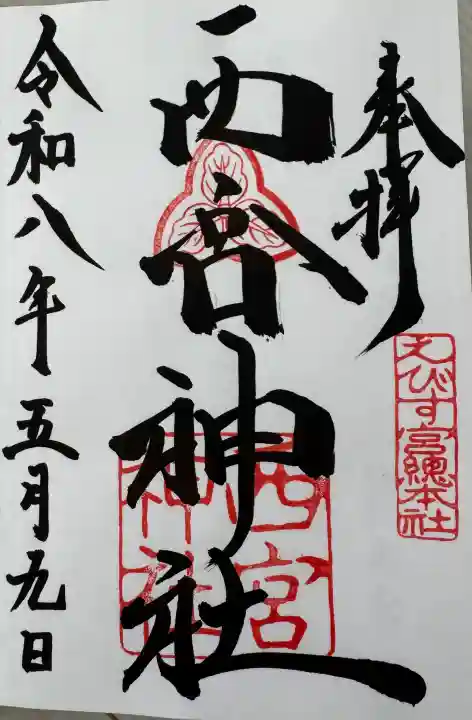 奉拝
えびす宮總本社
西宮神社
西宮
神社
令和八年五月九日